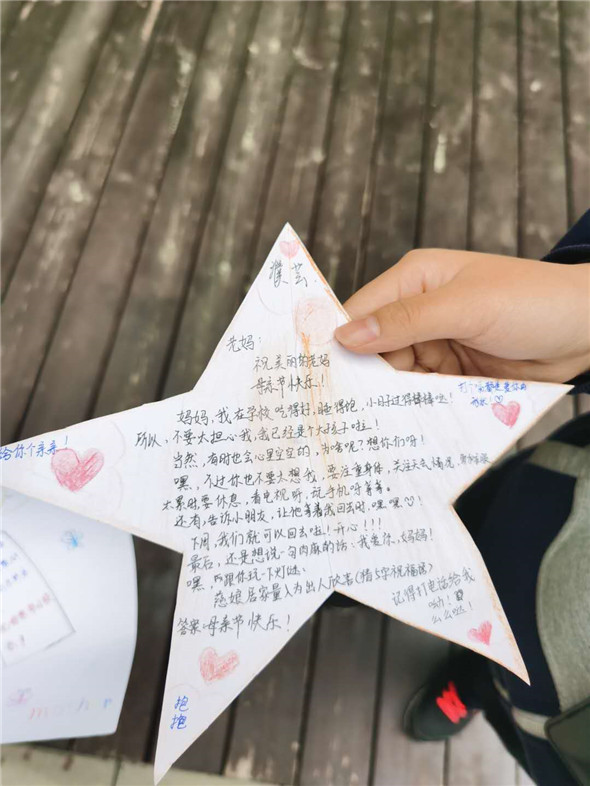 濮芸
老妈：
祝美丽的老妈
母亲节快乐！
妈妈，我在学校吃得好，睡得饱，小日子过得棒棒哒！
所以，不要太担心我，我已经是个大孩子啦！
当然，有时也会心里空空的，为啥呢？想你们呀！
嘿，不过你也不要太想我，要注重身体，关注天气情况，
太累时要休息，看电视听，玩手机呀等等。
还有，告诉小朋友，让他等着我回去时，嘿嘿！
下周，我们就可以回去啦！开心！！！
最后，还是想说一句肉麻的话：我爱你，妈妈！
嘿，再跟你玩一下灯谜：
慈娘居家量入为出人欣喜（猜5字祝福语）
答案：母亲节快乐！
记得打电话给我
呦！
么么哒！
给你个亲亲！
抱抱